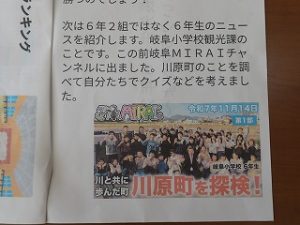 勝つのでしょう。
ランキング
次は６年２組ではなく６年生のニュー
スを紹介します。岐阜小学校観光課の
ことです。この前岐阜ＭＩＲＡＩチャ
ンネルに出ました。川原町のことを調
べて自分たちでクイズなどを考えまし
た。
MIRAI's
令和7年11月14日
第1部
岐阜小学校 6年生
川と共に
歩んだ町
川原町を探検！